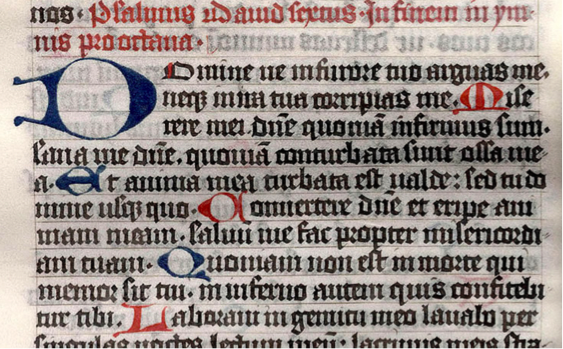 nos. Psalmus ad auid sextus. In finem in ym-
nis pro octaua.
Domine ne infurore tuo arguas me.
neqz in ira tua corripias me. Mise
rere mei dn̄e quoniā infirmus sum.
sana me dn̄e. quoniā conturbata sunt ossa me-
a. Et anima mea turbata est ualde: sed tu do
mine usqz quo. Conuertere dn̄e et eripe ani
mam meam. saluū me fac propter misericordi-
am tuam. Quoniam non est in morte qui
memor sit tui. in inferno autem quis confitebi
tur tibi. Laboraui in gemitu meo lauabo per
singulas noctes lectum meū: lacrimis meis stra-